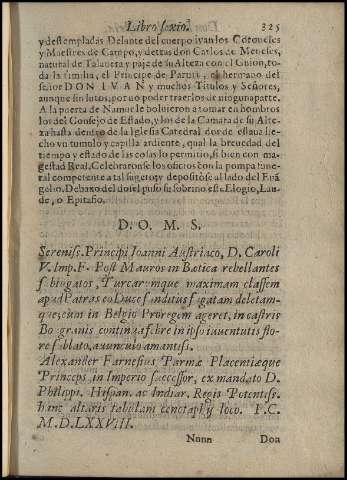 Libro sexto. 325
y destempladas Delante del cuerpo ivan los Coroneles
y Maestres de Campo, y detras don Carlos de Meneses,
natural de Talavera y paje de su Alteza con el Guion, to-
da la familia, el Principe de Parma, el hermano del
señor DON IVAN y muchos Titulos y Señores,
aunque sin lutos, por no poder traerlos de ninguna parte.
A la puerta de Namur le bolvieron a tomar en hombros
los del Consejo de Estado, y los de la Camara de su Alte-
za hasta dentro de la Iglesia Catedral donde estava he-
cho vn tumulo y capilla ardiente, qual la brevedad del
tiempo y estado de las cosas lo permitio, si bien con ma-
gestad Real. Celebraronse los oficios con la pompa fune-
ral competente a tal sugeto; y depositòse al lado del Euã
gelio. Debaxo del dosel puso su sobrino este Elogio, Lau-
de, o Epitafio.
D. O. M. S.
Sereniss. Principi Joanni Austriaco, D. Caroli
V. Imp. F. Post Mauros in Batica rebellantes
subiugatos, Turcarumque maximam classem
apud Patras eo Duce funditus fugatam deletam-
que, cum in Belgio Proregem ageret, in castris
Bogranis continua febre in ipso iuventutis flo-
re sublato, avunculo amantiss.
Alexander Farnesius Parmæ Placentiæque
Princeps in Imperio successor, ex mandato D.
Philippi, Hispan. ac Indiar. Regis Potentiss.
hanc altaris tabulam cenotaphij loco. P. C.
M. D. LXXVIII.
Nnnn Don